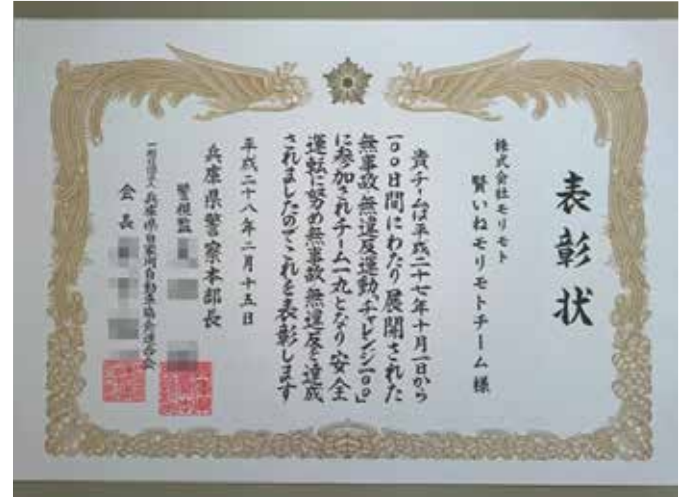 表彰状
株式会社モリモト
賢いねモリモトチーム様
貴チームは平成二十七年十月一日から
一〇〇日間にわたり展開された
無事故無違反運動「チャレンジ一〇〇」
に参加されチーム一丸となり安全
運転に努め無事故無違反を達成
されましたのでこれを表彰します
平成二十八年二月十五日
兵庫県警察本部長
警視監
一般社団法人 兵庫県自家用自動車協会連合会
会長